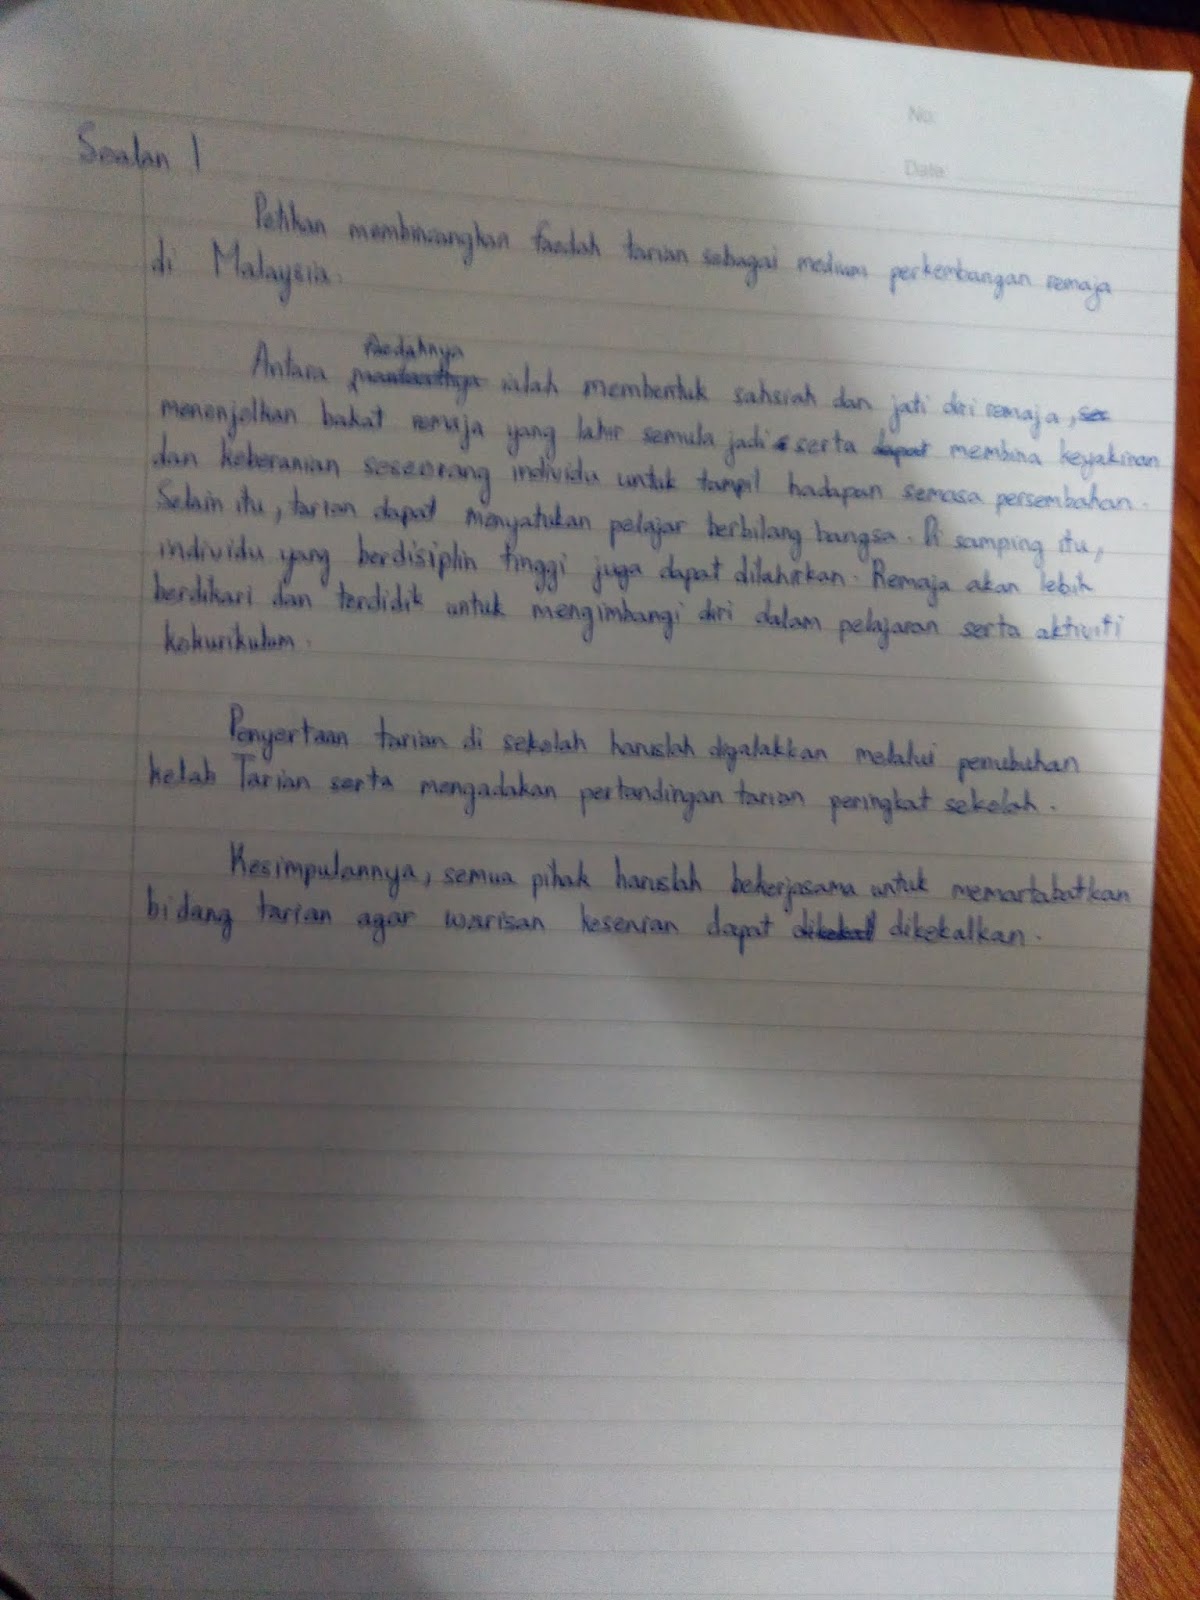 No:
Date:
Soalan 1
Petikan membincangkan faedah tarian sebagai medium perkembangan remaja
di Malaysia.
Faedahnya
Antara ialah membentuk sahsiah dan jati diri remaja,
menonjolkan bakat remaja yang lahir semula jadi serta membina keyakinan
dan keberanian seseorang individu untuk tampil hadapan semasa persembahan.
Selain itu, tarian dapat menyatukan pelajar berbilang bangsa. Di samping itu,
individu yang berdisiplin tinggi juga dapat dilahirkan. Remaja akan lebih
berdikari dan terdidik untuk mengimbangi diri dalam pelajaran serta aktiviti
kokurikulum.
Penyertaan tarian di sekolah haruslah digalakkan melalui penubuhan
kelab Tarian serta mengadakan pertandingan tarian peringkat sekolah.
Kesimpulannya, semua pihak haruslah bekerjasama untuk memartabatkan
bidang tarian agar warisan kesenian dapat dikekalkan.